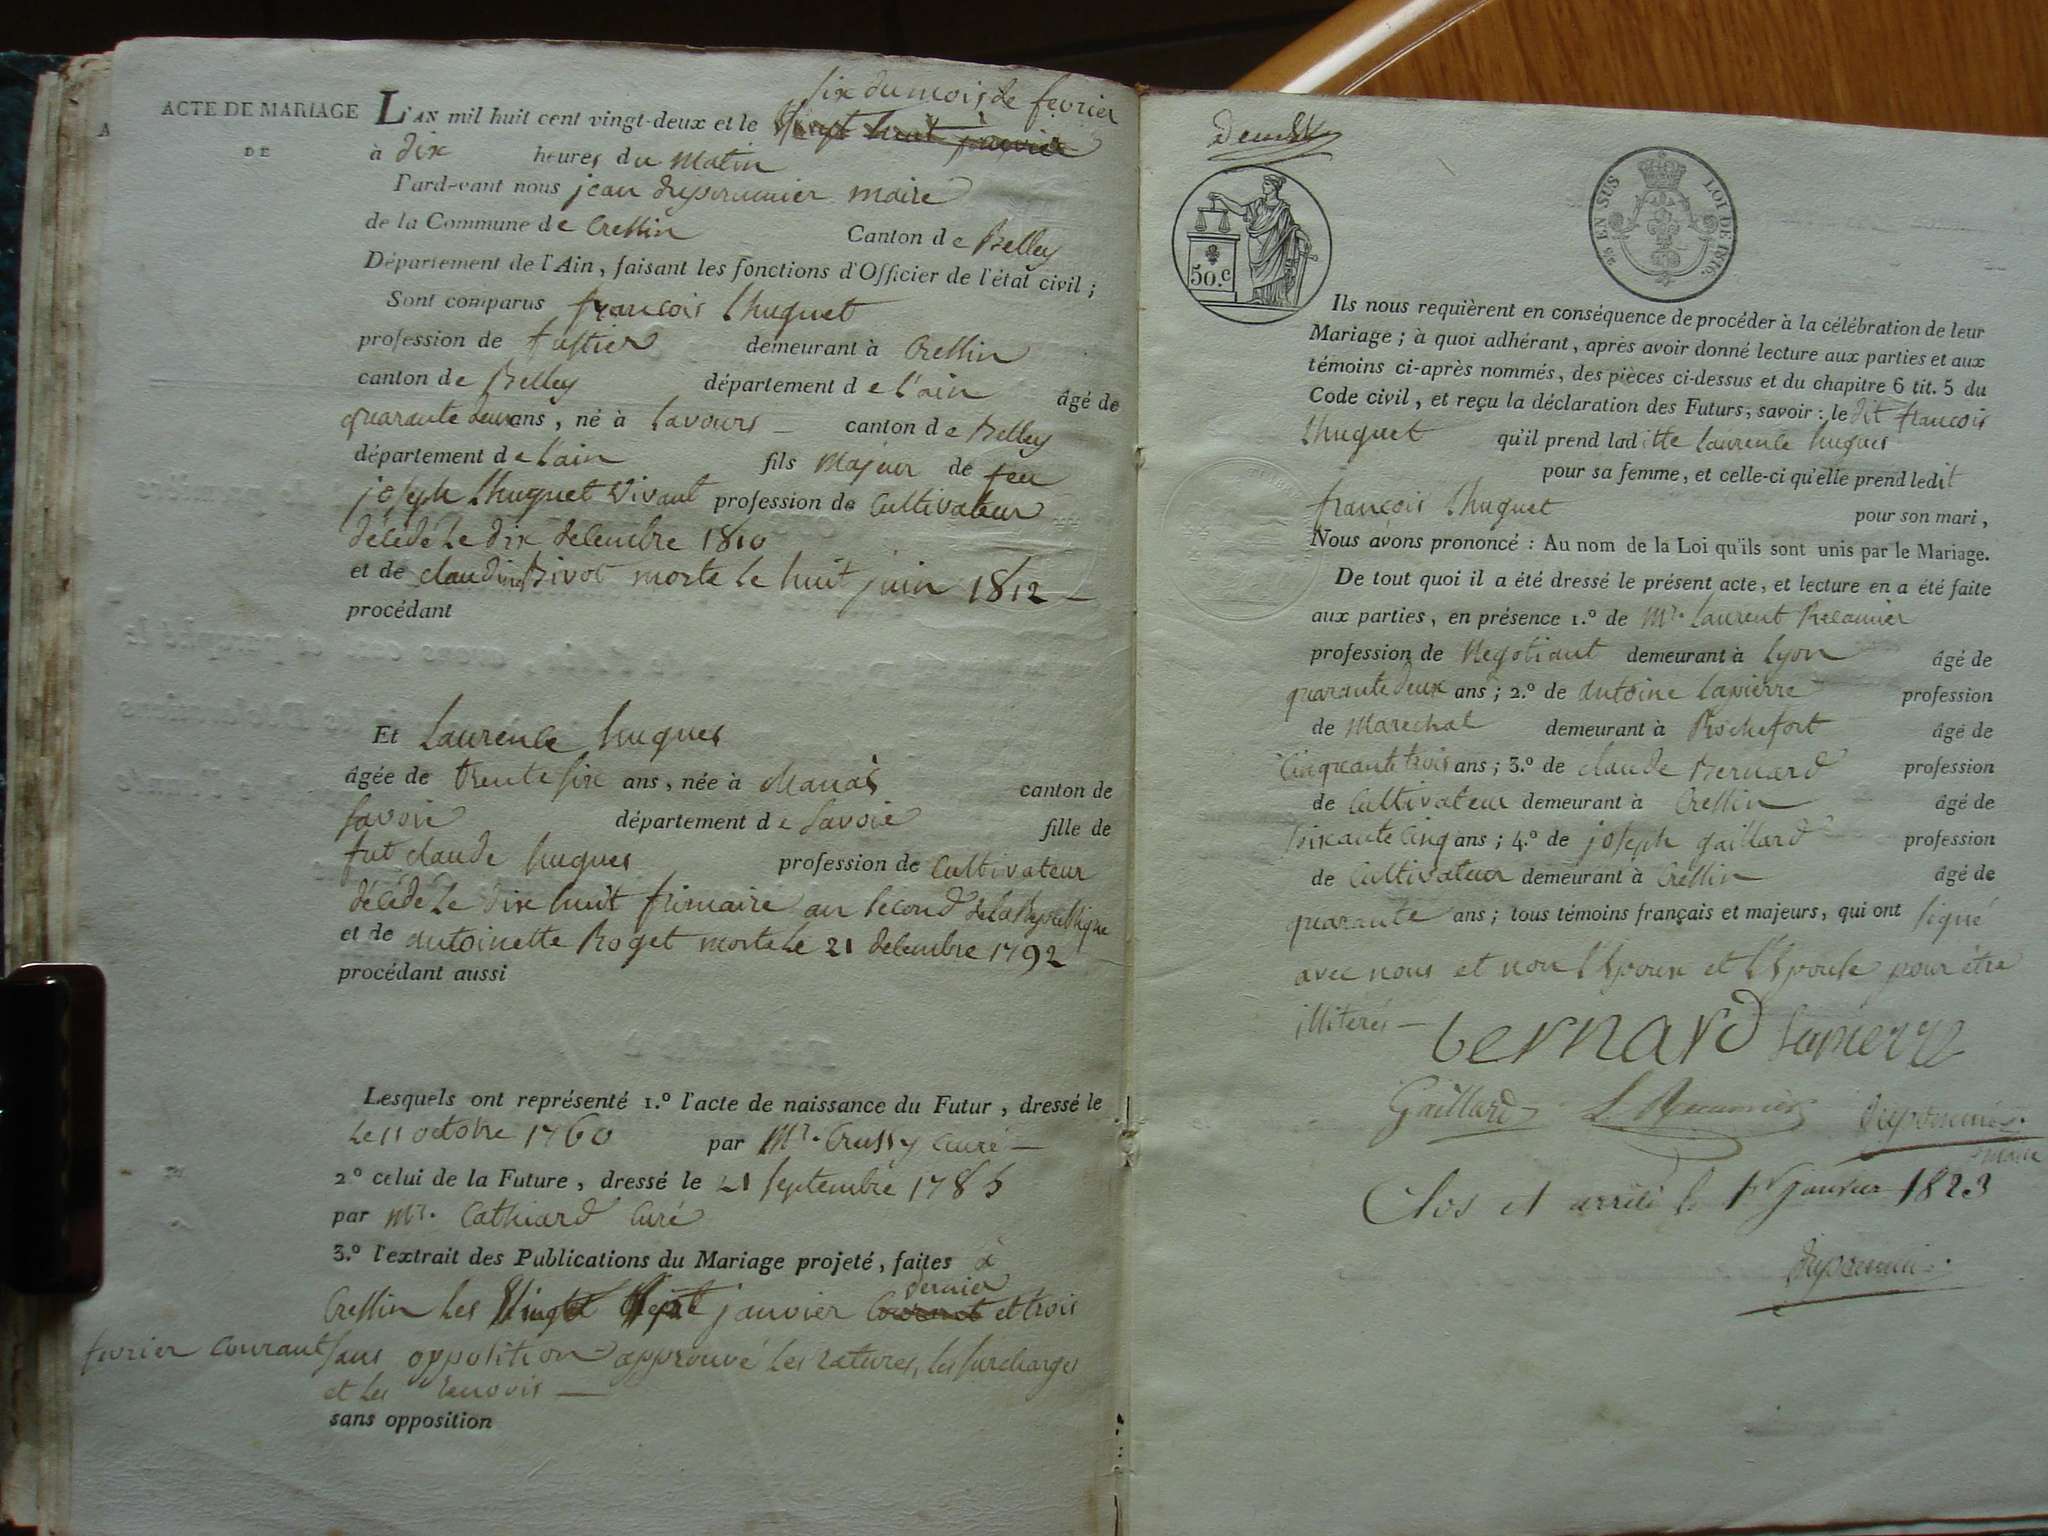 ACTE DE MARIAGE
DE
six du mois de fevrier
L'AN mil huit cent vingt-deux et le vingt huit janvier
à dix heures du matin
Pard-vant nous jean duponnier maire
de la Commune de Cressin Canton de Belley
Département de l'Ain, faisant les fonctions d'Officier de l'état civil ;
Sont comparus françois Lhuguet
profession de fustier demeurant à Cressin
canton de Belley département de l'ain âgé de
quarante deux ans, né à Lavours canton de Belley
département de l'ain fils majeur de feu
joseph Lhuguet vivant profession de Cultivateur
décédé le dix decembre 1810
et de claudine Bivot morte le huit juin 1812
procédant
Et Laurence hugues
âgée de trente six ans, née à canton de
Savoie département de Savoie fille de
fut claude hugues profession de Cultivateur
décédé le dix huit frimaire an second de la Republique
et de antoinette Roget morte le 21 decembre 1792
procédant aussi
Lesquels ont représenté 1.º l'acte de naissance du Futur, dressé le
le 11 octobre 1760 par Mr. Crussy curé
2º celui de la Future, dressé le 21 septembre 1785
par Mr. Cathiard Curé
3.º l'extrait des Publications du Mariage projeté, faites à
dernier
Cressin les vingt sept janvier Courant et trois
fevrier courant sans opposition approuvé les ratures, les surcharges
et les renvois
sans opposition
50.c
EN SUS LOI DE
Ils nous requièrent en conséquence de procéder à la célébration de leur
Mariage ; à quoi adhérant, après avoir donné lecture aux parties et aux
témoins ci-après nommés, des pièces ci-dessus et du chapitre 6 tit. 5 du
Code civil, et reçu la déclaration des Futurs, savoir : le dit françois
Lhuguet qu'il prend laditte Laurence hugues
pour sa femme, et celle-ci qu'elle prend ledit
françois Lhuguet pour son mari,
Nous avons prononcé : Au nom de la Loi qu'ils sont unis par le Mariage.
De tout quoi il a été dressé le présent acte, et lecture en a été faite
aux parties, en présence 1.º de Mr. Laurent
profession de Negotiant demeurant à Lyon âgé de
quarante deux ans ; 2.º de antoine Lapierre profession
de Marechal demeurant à Rochefort âgé de
Cinquante trois ans ; 3.º de claude Bernard profession
de Cultivateur demeurant à Cressin âgé de
soixante Cinq ans ; 4.º de joseph gaillard profession
de Cultivateur demeurant à Cressin âgé de
quarante ans ; tous témoins français et majeurs, qui ont signé
avec nous et non l'Epoux et l'Epouse pour être
illiterés
bernard Lapierre
Gaillard duponnier
maire
Clos et arrêté le 1er janvier 1823
duponnier